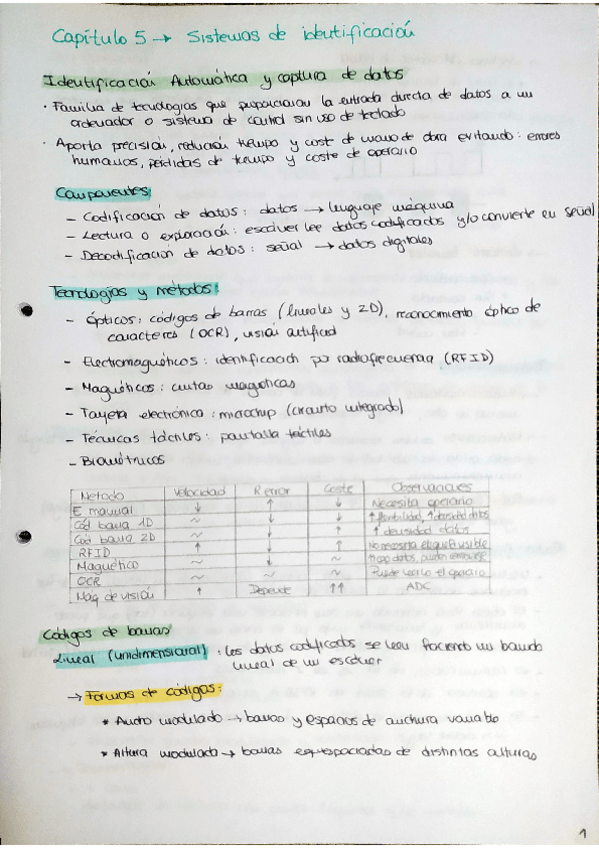 Capítulo 5 → Sistemas de identificación
Identificación Automática y captura de datos
· Familia de tecnologías que proporcionan la entrada directa de datos a un
ordenador o sistema de control sin uso de teclado
· Aporta precisión, reducción tiempo y cost de mano de obra evitando: errores
humanos, pérdidas de tiempo y coste de operario
Componentes:
- Codificación de datos: datos → lenguaje máquina
- Lectura o exploración: escáner lee datos codificados y/o convierte en señal
- Decodificación de datos: señal → datos digitales
Tecnologías y métodos:
- Ópticos: códigos de barras (lineales y 2D), reconocimiento óptico de
caracteres (OCR), visión artificial
- Electromagnéticos: identificación por radiofrecuencia (RFID)
- Magnéticos: cintas magnéticas
- Tarjeta electrónica: microchip (circuito integrado)
- Técnicas táctiles: pantalla táctiles
- Biométricos
Método Velocidad R error Coste Observaciones
E manual ↓ ↑ ↓ Necesita operario
Cód barra 1D ~ ↓ ↓ ↑ flexibilidad, ↑ densidad datos
Cód barra 2D ~ ↓ ↓ ↑ densidad datos
RFID ↑ ↓ ↑ No necesita etiqueta visible
Magnético ~ ↓ ~ ↑ cap datos, pueden
OCR ~ ~ ~ Puede leerlo el operario
Máq de visión ↑ Depende ↑↑ ADC
Códigos de barras
Lineal (unidimensional): Los datos codificados se leen haciendo un barrido
lineal de un escáner
→ Formas de códigos:
* Ancho modulado → barras y espacios de anchura variable
* Altura modulada → barras equespaciadas de distintas alturas
1